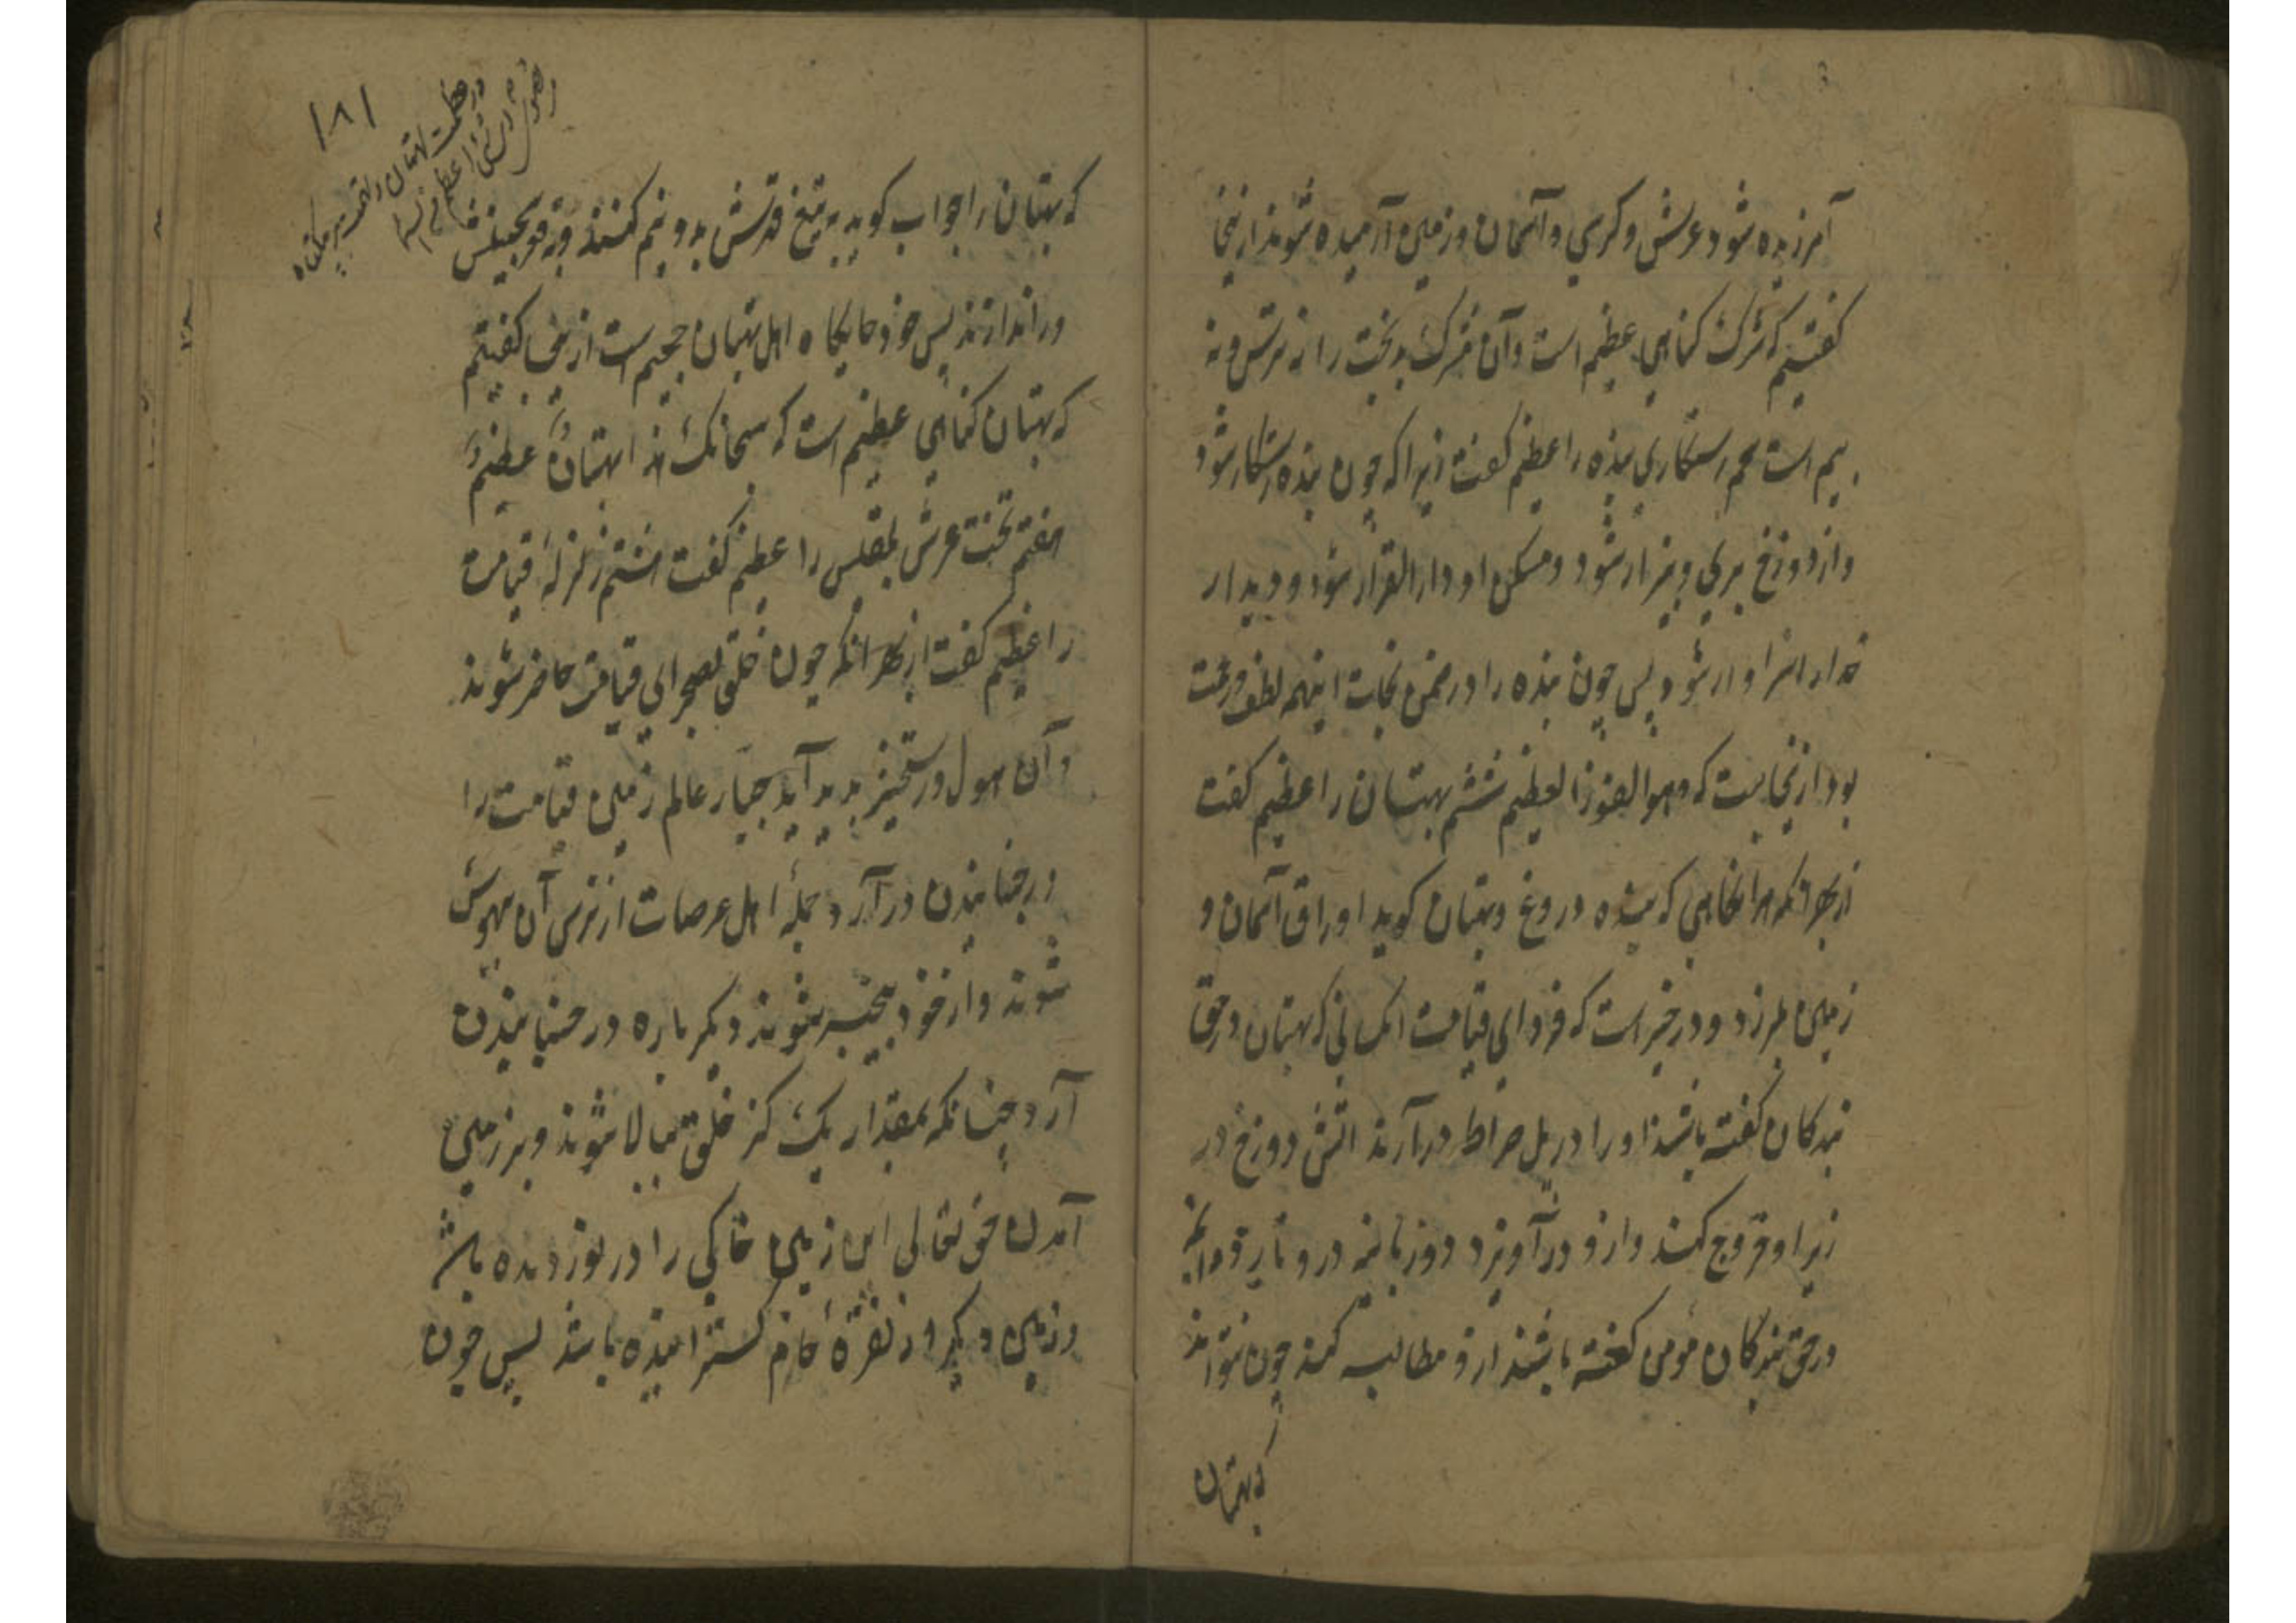 آمرزیده شود عرش و کرسی و آسمان و زمین آرمیده شوند ازینجا
کفتیم که شرک کناهی عظیم است و آن مشرک بدبخت را نه ترس و نه
بیم است پنجم رستکاری بنده را عظیم کفت زیرا که چون بنده رستکار شود
و از دوزخ بری و بیزار شود و مسکن او دار القرار شود و دیدار
خدا را سزاوار شود پس چون بنده را در ضمن نجات اینهمه لطف و رحمت
بود ازینجاست که وهو الفوز العظیم ششم بهتان را عظیم کفت
از بهر آنکه هرانکاهی که بنده دروغ و بهتان کوید اوراق آسمان و
زمین بلرزد و در خبر است که فردای قیامت انکسانی که بهتان در حق
بندکان کفته باشند او را در پل صراط درآرند اتش دوزخ در
زیر او خروج کند و ازو درآویزد و زبانیه درو
در حق بندکان مؤمن کفته باشند ازو مطالبه کند چون نتواند
که بهتان
۱۸۱
در عظمت بهتان
که بهتان را جواب کوید به تیغ قدرتش بدو نیم کنند و در قعر جحیلش
در اندازند پس چو جایکاه اهل بهتان جحیم است ازینجا کفتیم
که بهتان کناهی عظیم است که سبحانک هذا بهتانٌ عظیمٌ
هفتم تخت عرش بلقیس را عظیم کفت هشتم زلزلهٔ قیامت
را عظیم کفت از بهر انکه چون خلق بصحرای قیامت حاضر شوند
و آن هول و رستخیز پدید آید جبّار عالم زمین قیامت را
در جنبانیدن درآرد جملهٔ اهل عرصات از ترس آن بیهوش
شوند و از خود بیخبر شوند دیکر باره در جنبانیدن
آرد چنانکه بمقدار یک کز خلق ببالا شوند و بر زمین
آمدن حق تعالی این زمین خاکی را در نوردیده باشد
و زمین دیکر از نقرهٔ خام کسترانیده باشد پس چون